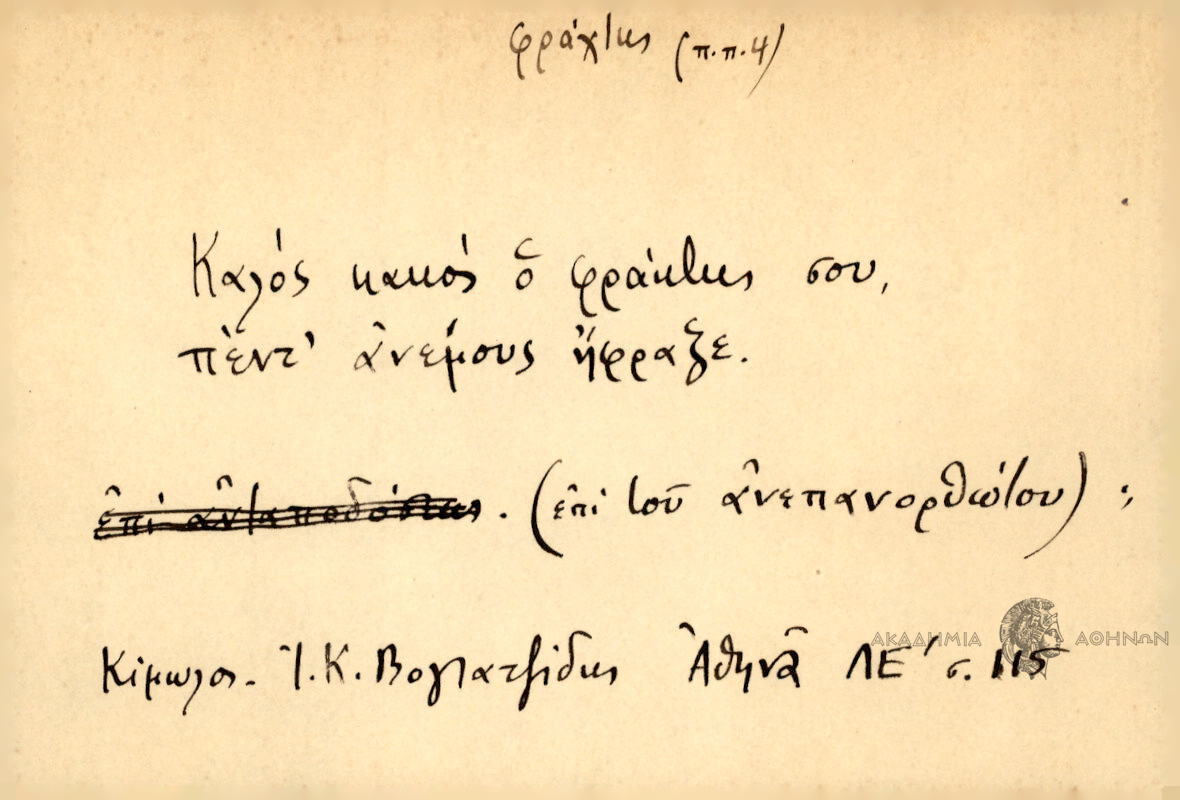 φράχτης (π.π.4)
Καλὸς κακὸς ὁ φράκτης σου,
πέντ' ἀνέμους ἤφραξε.
ἐπὶ ἀνταποδόσεως. (ἐπὶ τοῦ ἀνεπανορθώτου) ;
Κίμωλος. Ἰ. Κ. Βογιατζίδης Ἀθηνᾶ ΛΕ' σ. 115
ΑΚΑΔΗΜΙΑ ΑΘΗΝΩΝ